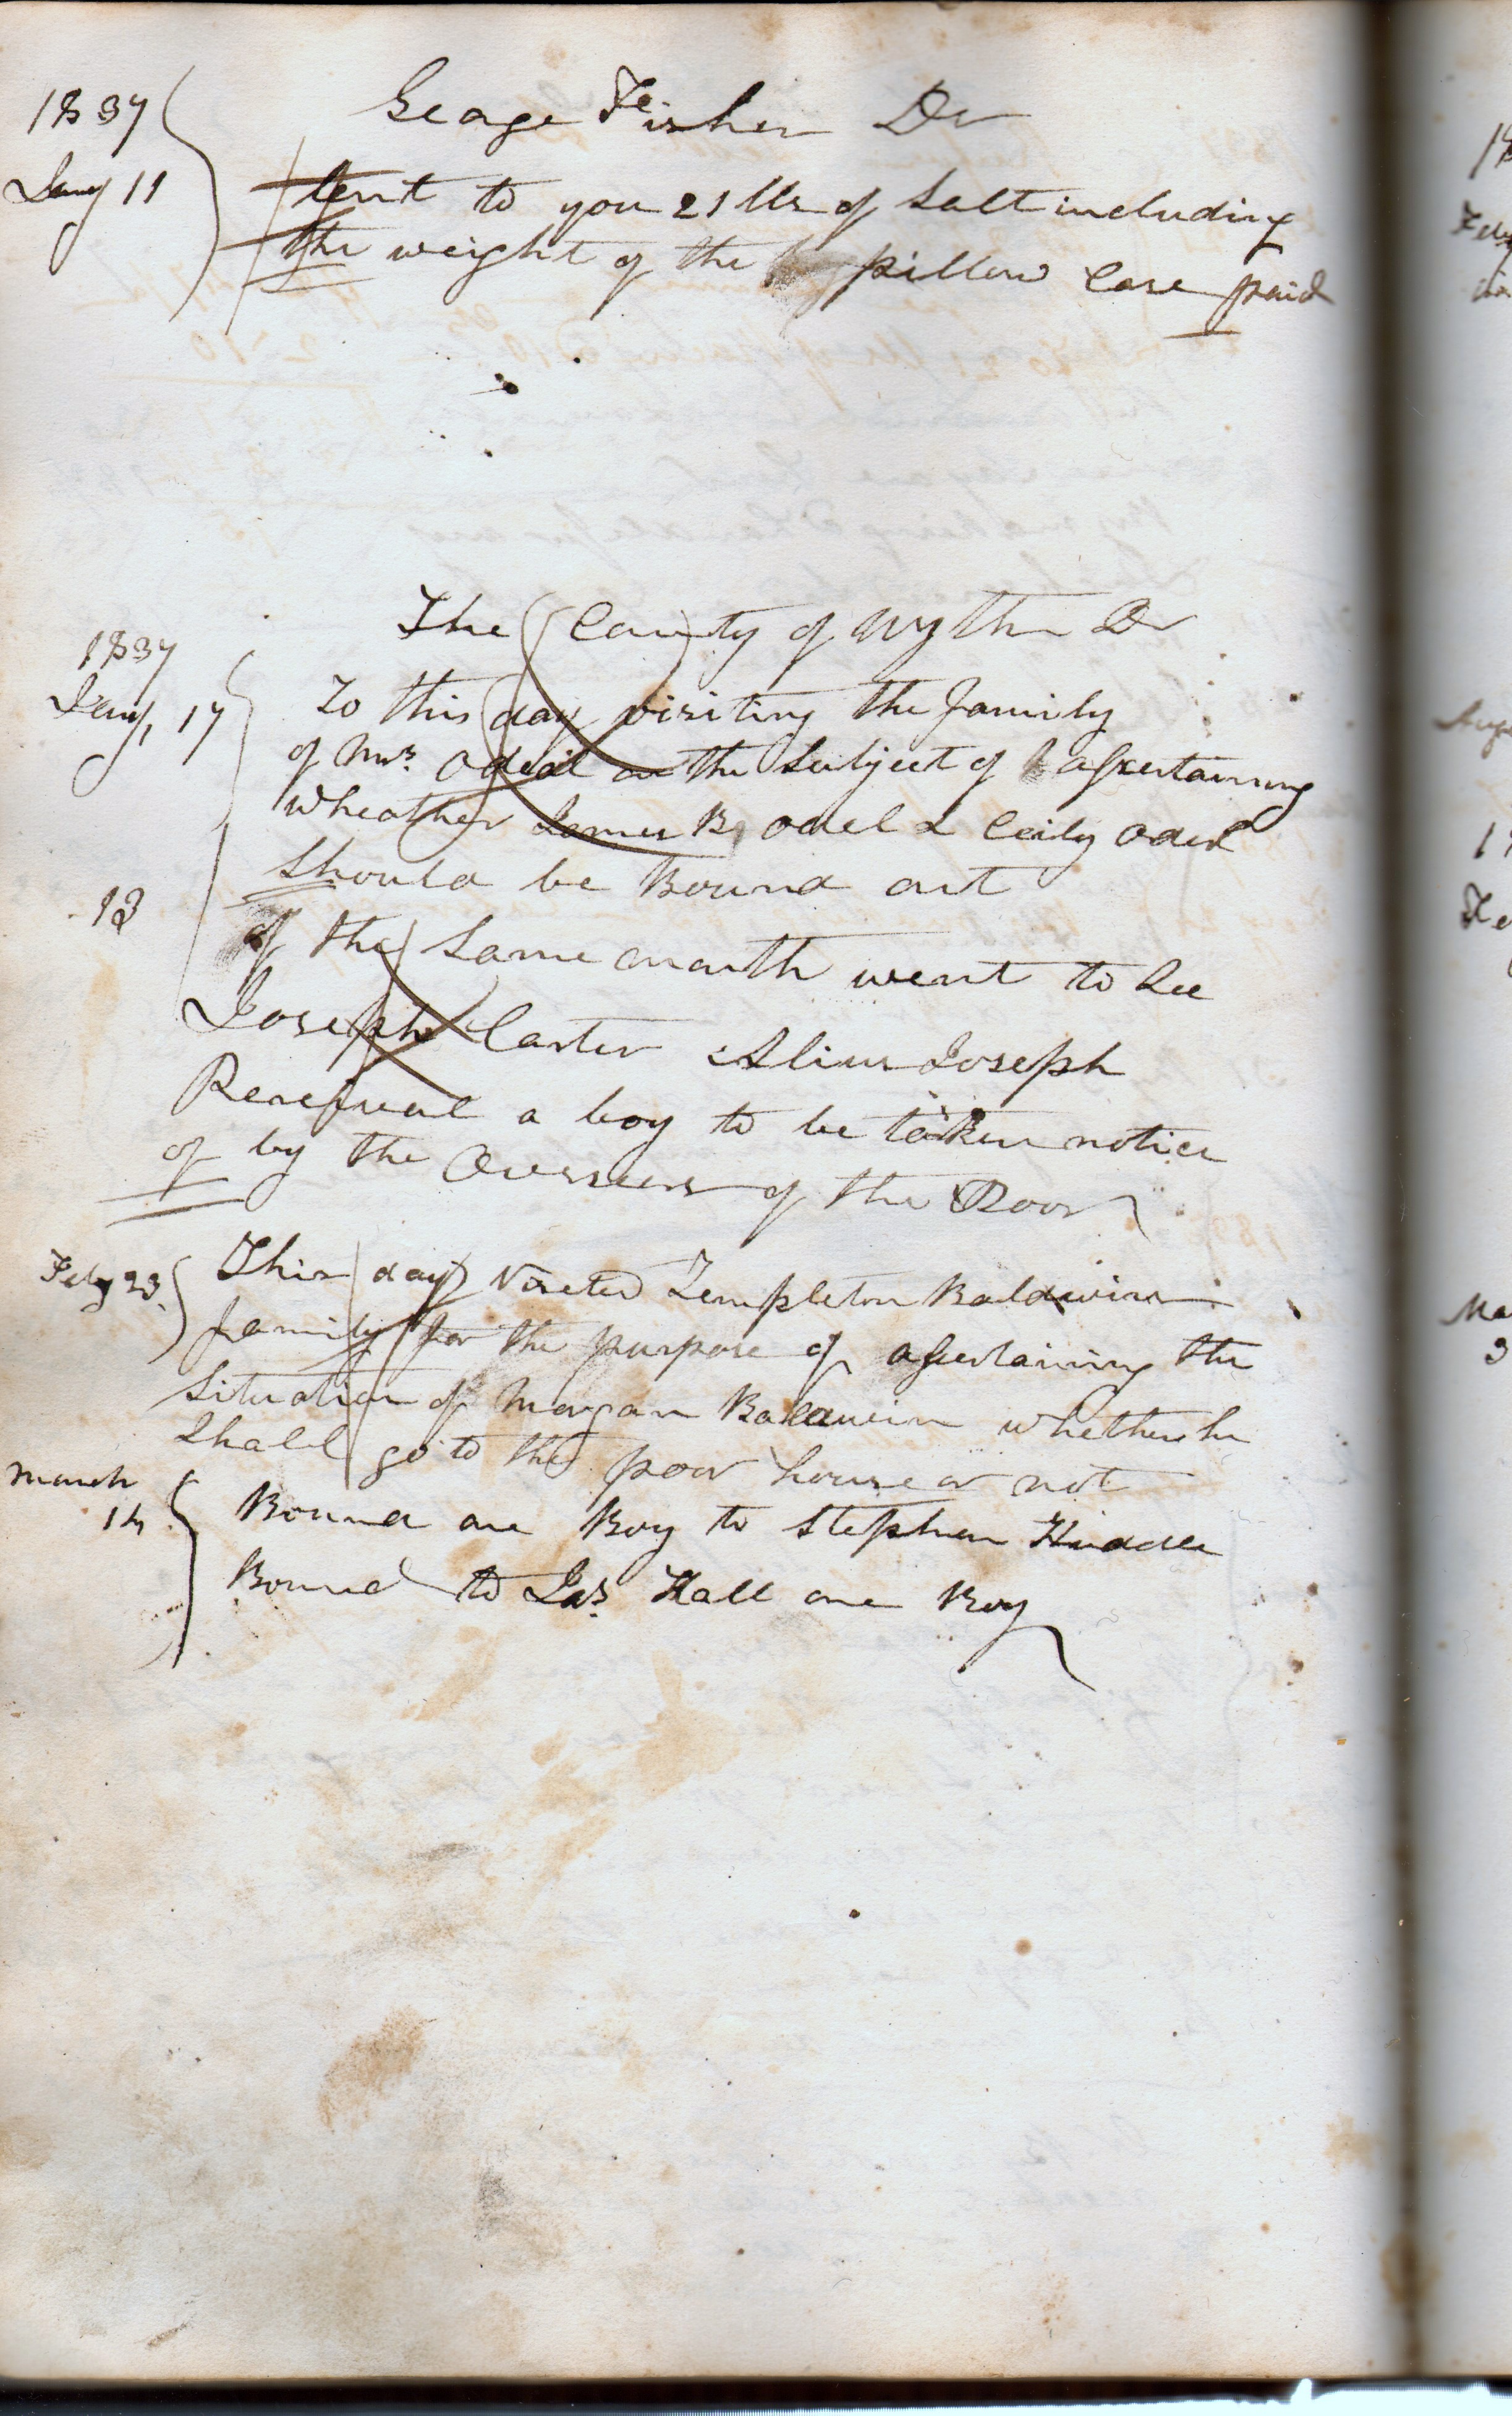 1837 George Fisher Dr
Jany 11 lent to you 21 lbs of Salt including
the weight of the pillow Case paid
The County of Wythe Dr
1837
Jany, 17 To this day visiting the family
of Mrs. Odeal on the Subject of asertaining
Wheather James B. Odel & Odel
Should be Bound out
18 of the Same month went to See
Joseph Carter Alius Joseph
a boy to be taken notice
of by the Overseers of the Poor
Feby 23. This day Viseted Templeton Baldwins
family for the purpose of asertaining the
Situation of Morgan Baldwin whether he
Shall go to the poor house or not
March
14 Bound one Boy to Stephen
Bound to Jas. Hall one Boy